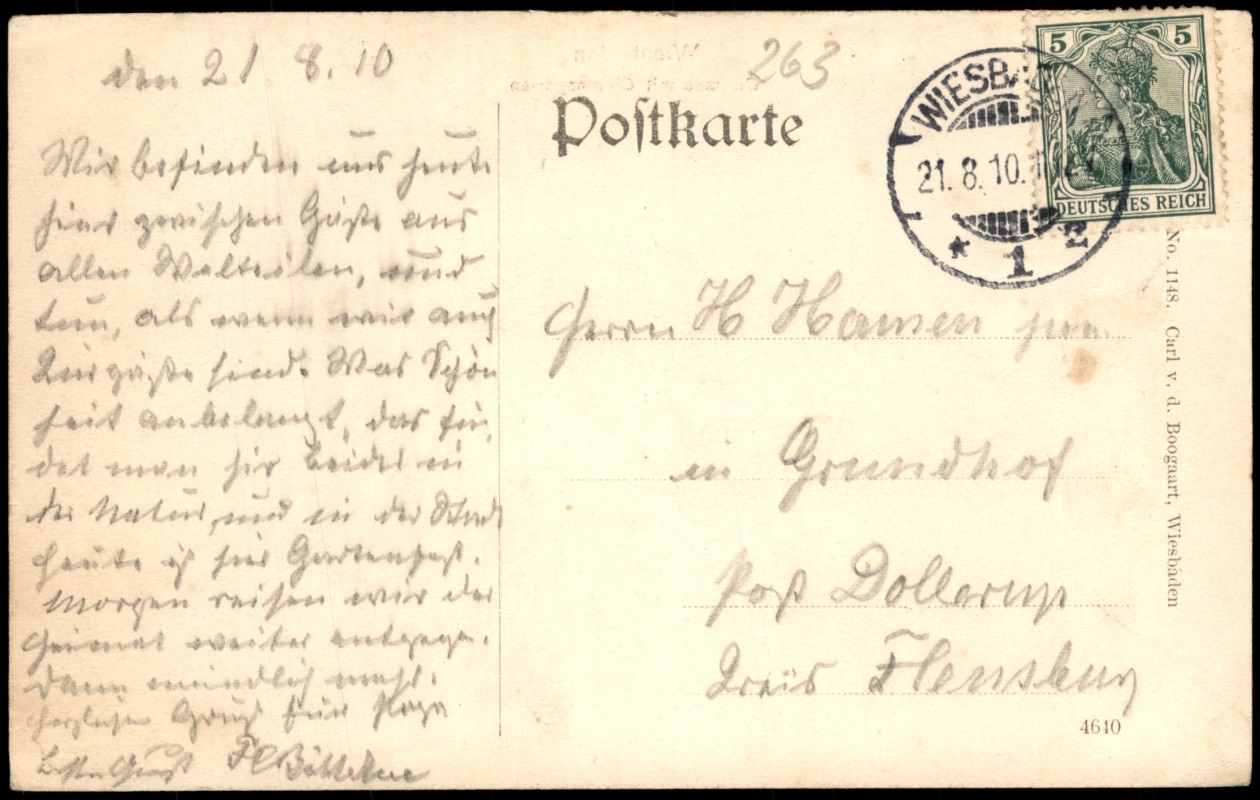 den 21 8. 10
Wir befinden uns heute
hier zwischen Gäste aus
allen Welteilen, und
tun, als wenn wir auch
Kurgäste sind. Was Schön
heit anbelangt, das fin
det man hir beides in
der Natur, und in der Stadt
heute ist hier Gartenfest.
Morgen reisen wir der
Heimat weiter entgegen.
Dann mündlich mehr.
herzlichen Gruß für Papa
Gruß
263
Postkarte
WIESBADEN
21. 8. 10. 10-11
* 1 z
5 5
DEUTSCHES REICH
Herrn H Hansen sen.
in Grundhof
Post Dollerup
Kreis Flensburg
No. 1148. Carl v. d. Boogaart, Wiesbaden
4610